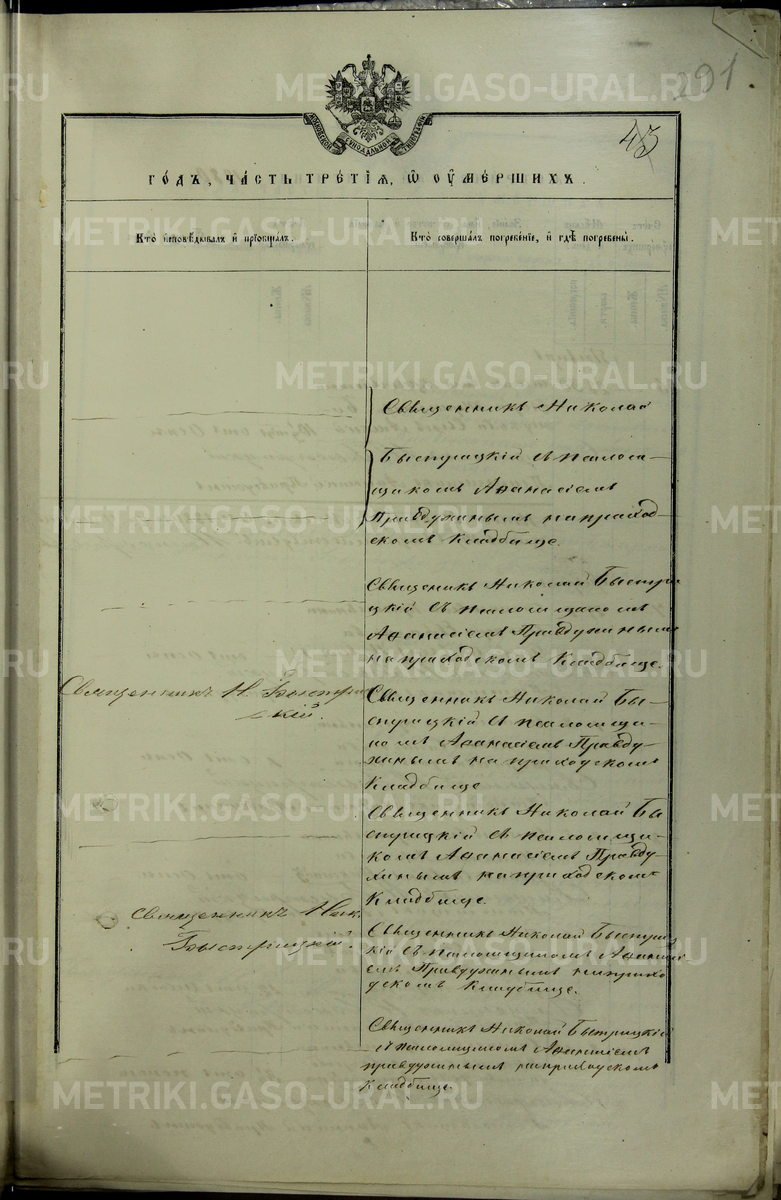 291
43
МОСКОВСКОЙ СѴНОДАЛЬНОЙ ТИПОГРАФІИ
ГОДЪ, ЧАСТЬ ТРЕТІЯ, Ѿ ОУМЕРШИХЪ.
Кто исповѣдывалъ и пріобщалъ.
Кто совершалъ погребеніе, и гдѣ погребены.
Священникъ Николай
Быстрицкій съ псалом-
щикомъ Аѳанасіемъ
Правдухинымъ на приход-
скомъ Кладбище.
Священикъ Николай Быстри
цкій съ псаломщикомъ
Аѳанасіемъ Правдухинымъ
на приходскомъ Кладбище.
Священникъ Н. Быстриц
кій.
Священникъ Николай Бы-
стрицкій съ псаломщи-
комъ Аѳанасіемъ Правду-
хинымъ на приходскомъ
Кладбище
Священникъ Николай Бы
стрицкій съ псаломщи-
комъ Аѳанасіемъ Правду-
хинымъ на приходскомъ
Кладбище.
Священникъ Ник.
Быстрицкій.
Священникъ Николай Быстриц
кій съ псаломщикомъ Аѳанасі
емъ Правдухинымъ на прихо
дскомъ Кладбище.
Священникъ Николай Быстрицкій
съ псаломщикомъ Аѳанасіемъ
правдухинымъ на приходскомъ
Кладбище.
METRIKI.GASO-URAL.RU